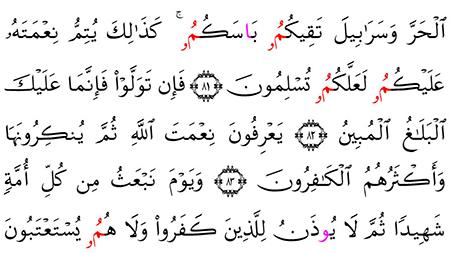 اَ۬لْحَرَّ وَسَرَٰبِيلَ تَقِيكُمُۥ بَاسَكُمُۥۚ كَذَٰلِكَ يُتِمُّ نِعْمَتَهُۥ
عَلَيْكُمُۥ لَعَلَّكُمُۥ تُسْلِمُونَ ۝٨١ فَإِن تَوَلَّوْاْ فَإِنَّمَا عَلَيْكَ
اَ۬لْبَلَٰغُ اُ۬لْمُبِينُ ۝٨٢ يَعْرِفُونَ نِعْمَتَ اَ۬للَّهِ ثُمَّ يُنكِرُونَهَا
وَأَكْثَرُهُمُ اُ۬لْكَٰفِرُونَ ۝٨٣ وَيَوْمَ نَبْعَثُ مِن كُلِّ أُمَّةٖ
شَهِيدٗا ثُمَّ لَا يُوذَنُ لِلَّذِينَ كَفَرُواْ وَلَا هُمُۥ يُسْتَعْتَبُونَ